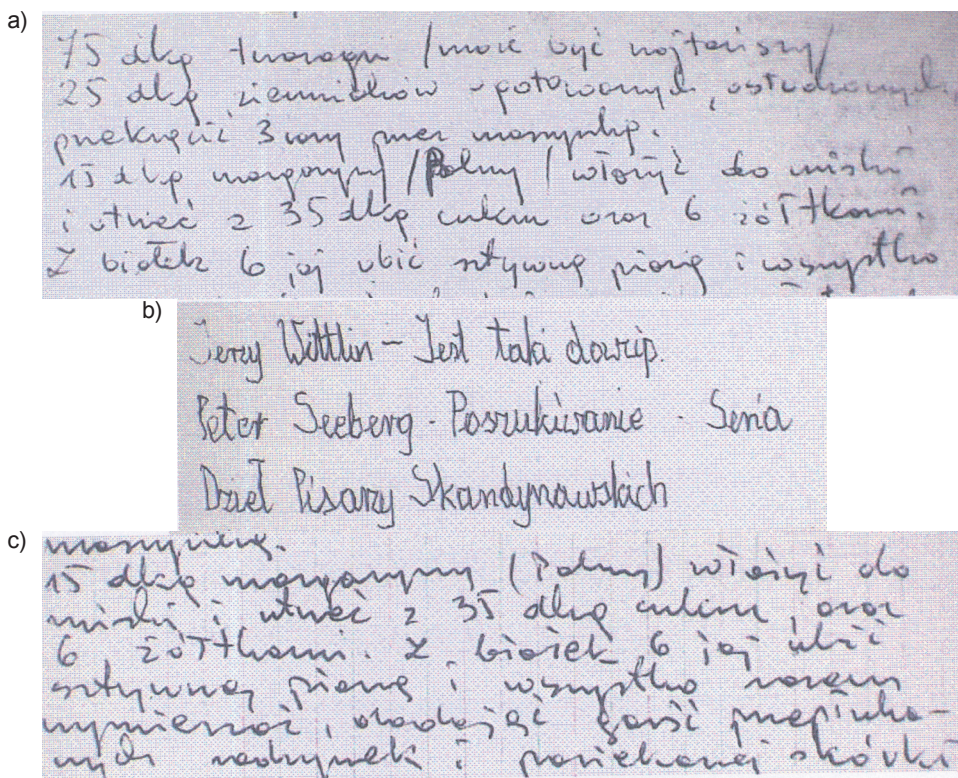 a)
75 dkg twarogu /może być najtańszy/
25 dkg ziemniaków ugotowanych, ostudzonych
przekręcić 3 razy przez maszynkę.
15 dkg margaryny /Palmy/ włożyć do miski
i utrzeć z 35 dkg cukru oraz 6 żółtkami.
Z białek 6 jaj ubić sztywną pianę i wszystko
b)
Jerzy Wittlin – Jest taki dowcip.
Peter Seeberg - Poszukiwanie - Seria
Dzieł Pisarzy Skandynawskich
c)
maszynkę.
15 dkg margaryny (Palmy) włożyć do
miski i utrzeć z 35 dkg cukru, oraz
6 żółtkami. Z białek 6 jaj ubić
sztywną pianę i wszystko razem
wymieszać, dodając garść przepłuka-
nych rodzynek i posiekanej skórki